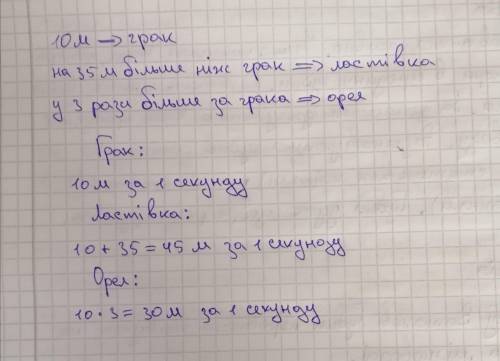 10м → грак
на 35 м більше ніж грак ⇒ ластівка
у 3 рази більше за грака ⇒ орел
Грак:
10м за 1 секунду
Ластівка:
10 + 35 = 45 м за 1 секунду
Орел:
10 · 3 = 30м за 1 секунду